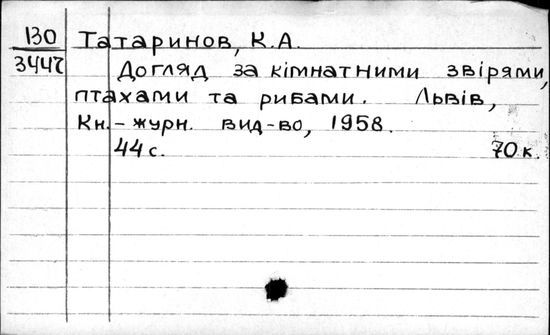 130 Татаринов, К.А.
3447 Догляд за кімнатними звірями,
птахами та рибами. Львів,
Кн.-журн. вид-во, 1958.
44 с. 70 к.